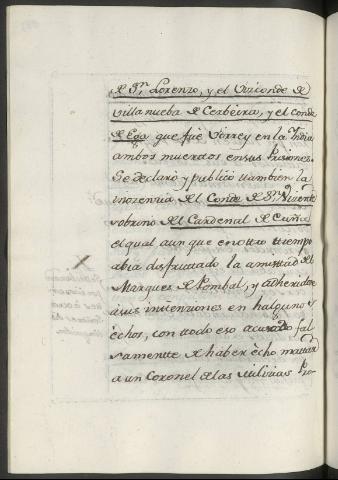 de Sn. Lorenzo, y el Vizconde de
Villanueba de Cerbeira, y el conde
de Ega que fue Virrey en la India
ambos muertos en sus Prisiones.
Se declaró y publicó tambien la
inozenzia del Conde de Sn. Vizente
sobrino del Cardenal de Cuña
el qual aun que en otro tiempo
abia disfrutado la amistad del
Marques de Pombal, y adherido
à sus intenziones en halgunos
èchos, con todo eso acusado fal
samente de háber ècho mattar
a un Coronel de las Milizias Pro-